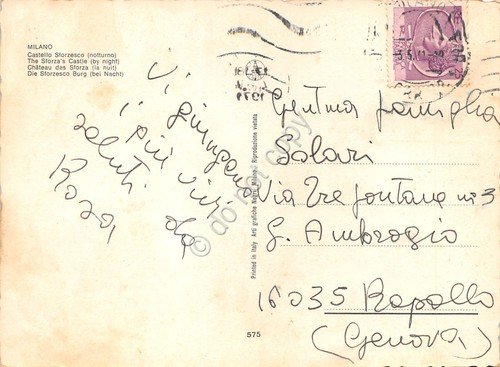 MILANO
Castello Sforzesco (notturno)
The Sforza's Castle (by night)
Château das Sforza (la nuit)
Die Sforzesco Burg (bei Nacht)
Vi giungano
i più vivi
saluti da
Rosa
Printed in Italy Arti grafiche Milano. Riproduzione vietata
Gentma famiglia
Solari
Via Tre fontane n. 3
S. Ambrogio
16035 Rapallo
(Genova)
575
do not copy